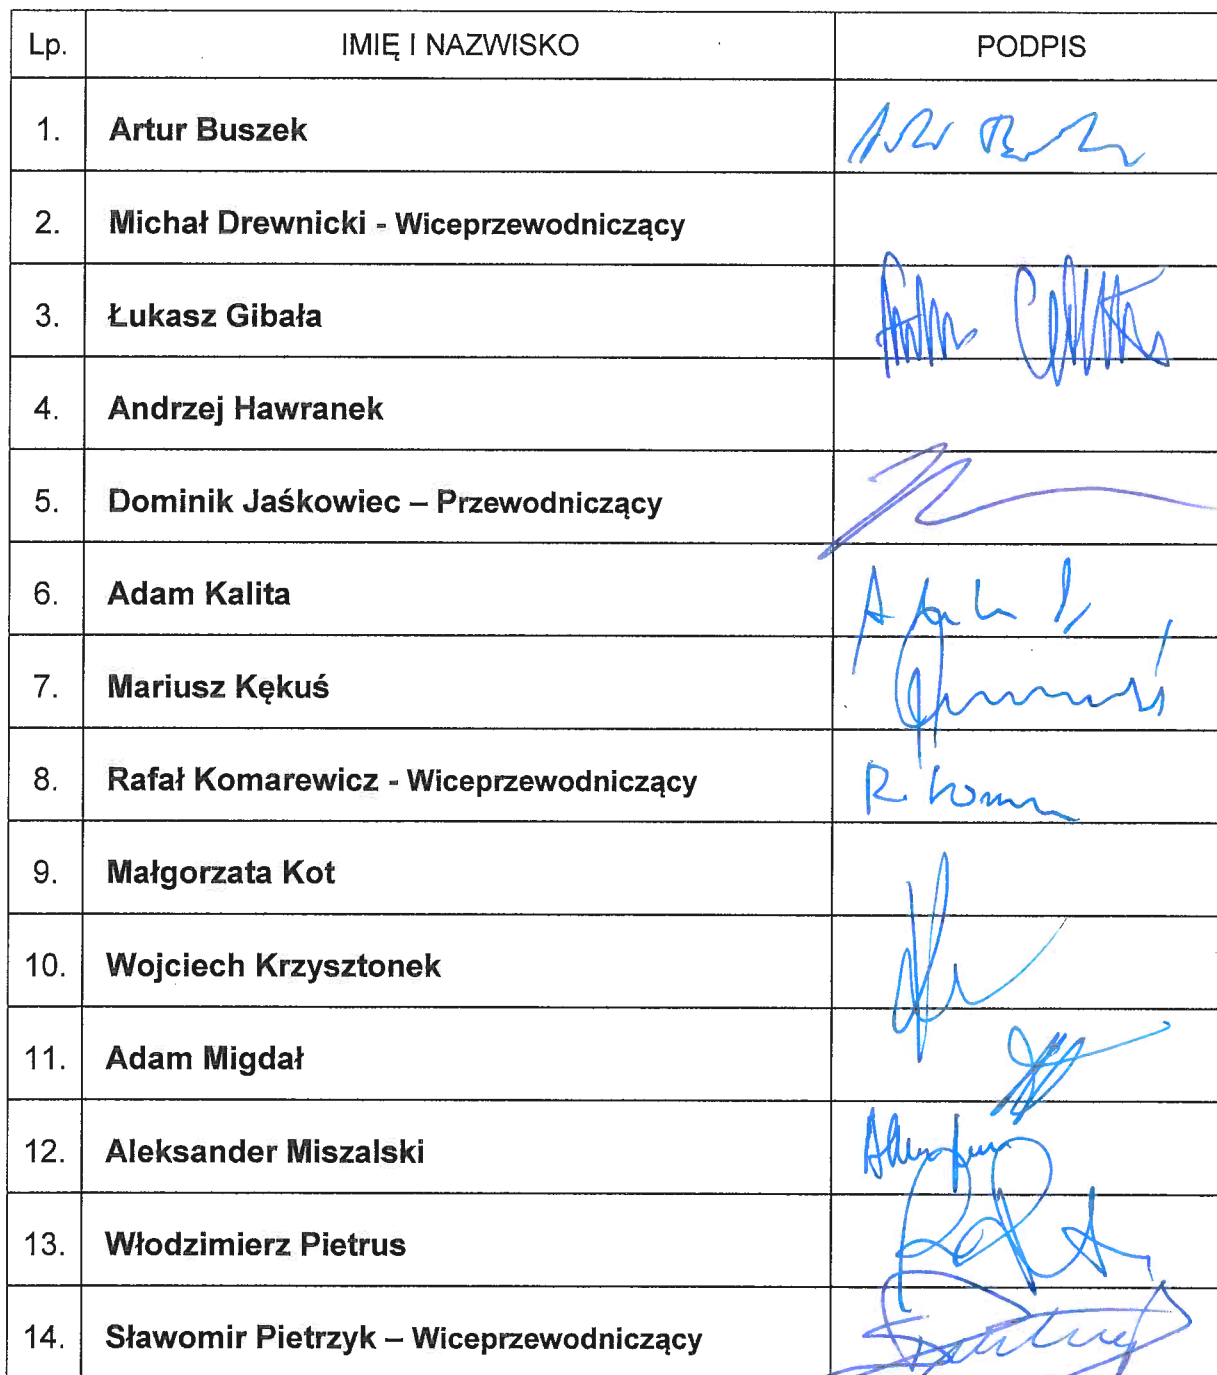 Lp. IMIĘ I NAZWISKO PODPIS
1. Artur Buszek
2. Michał Drewnicki - Wiceprzewodniczący
3. Łukasz Gibała
4. Andrzej Hawranek
5. Dominik Jaśkowiec – Przewodniczący
6. Adam Kalita
7. Mariusz Kękuś
8. Rafał Komarewicz - Wiceprzewodniczący R. Kom
9. Małgorzata Kot
10. Wojciech Krzysztonek
11. Adam Migdał
12. Aleksander Miszalski
13. Włodzimierz Pietrus
14. Sławomir Pietrzyk – Wiceprzewodniczący